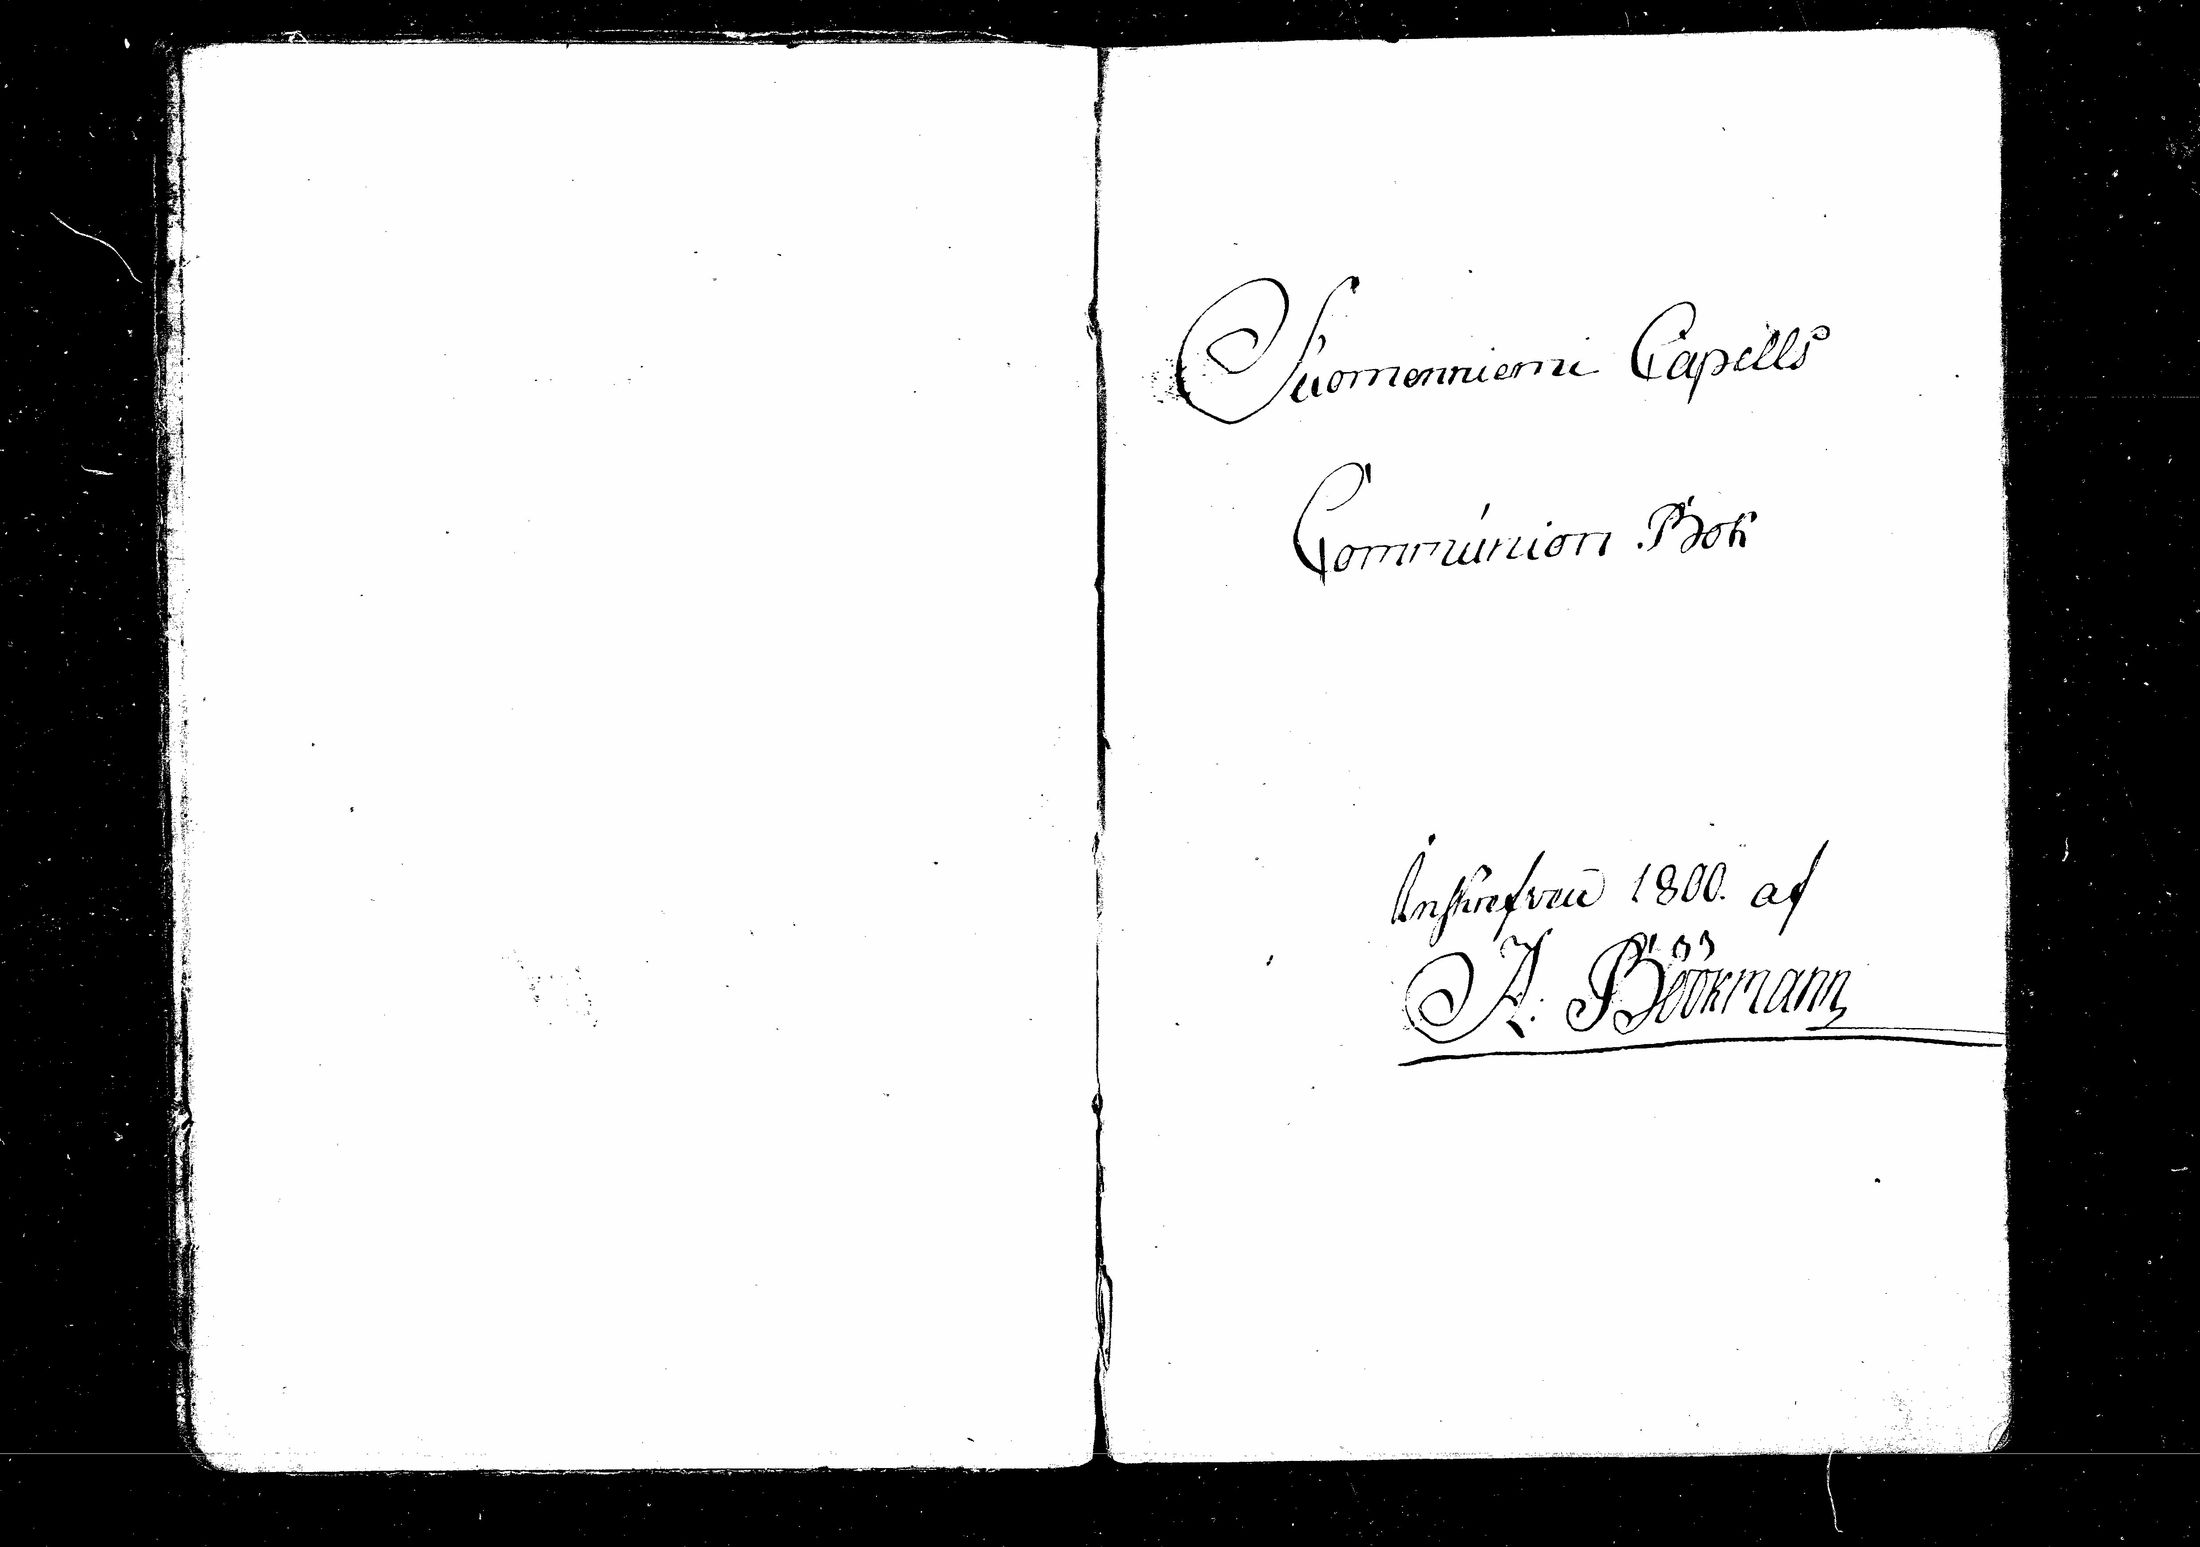 Suomenniemi Capells
Communion Bok
Inskrefven 1800. af
A. Böökmann